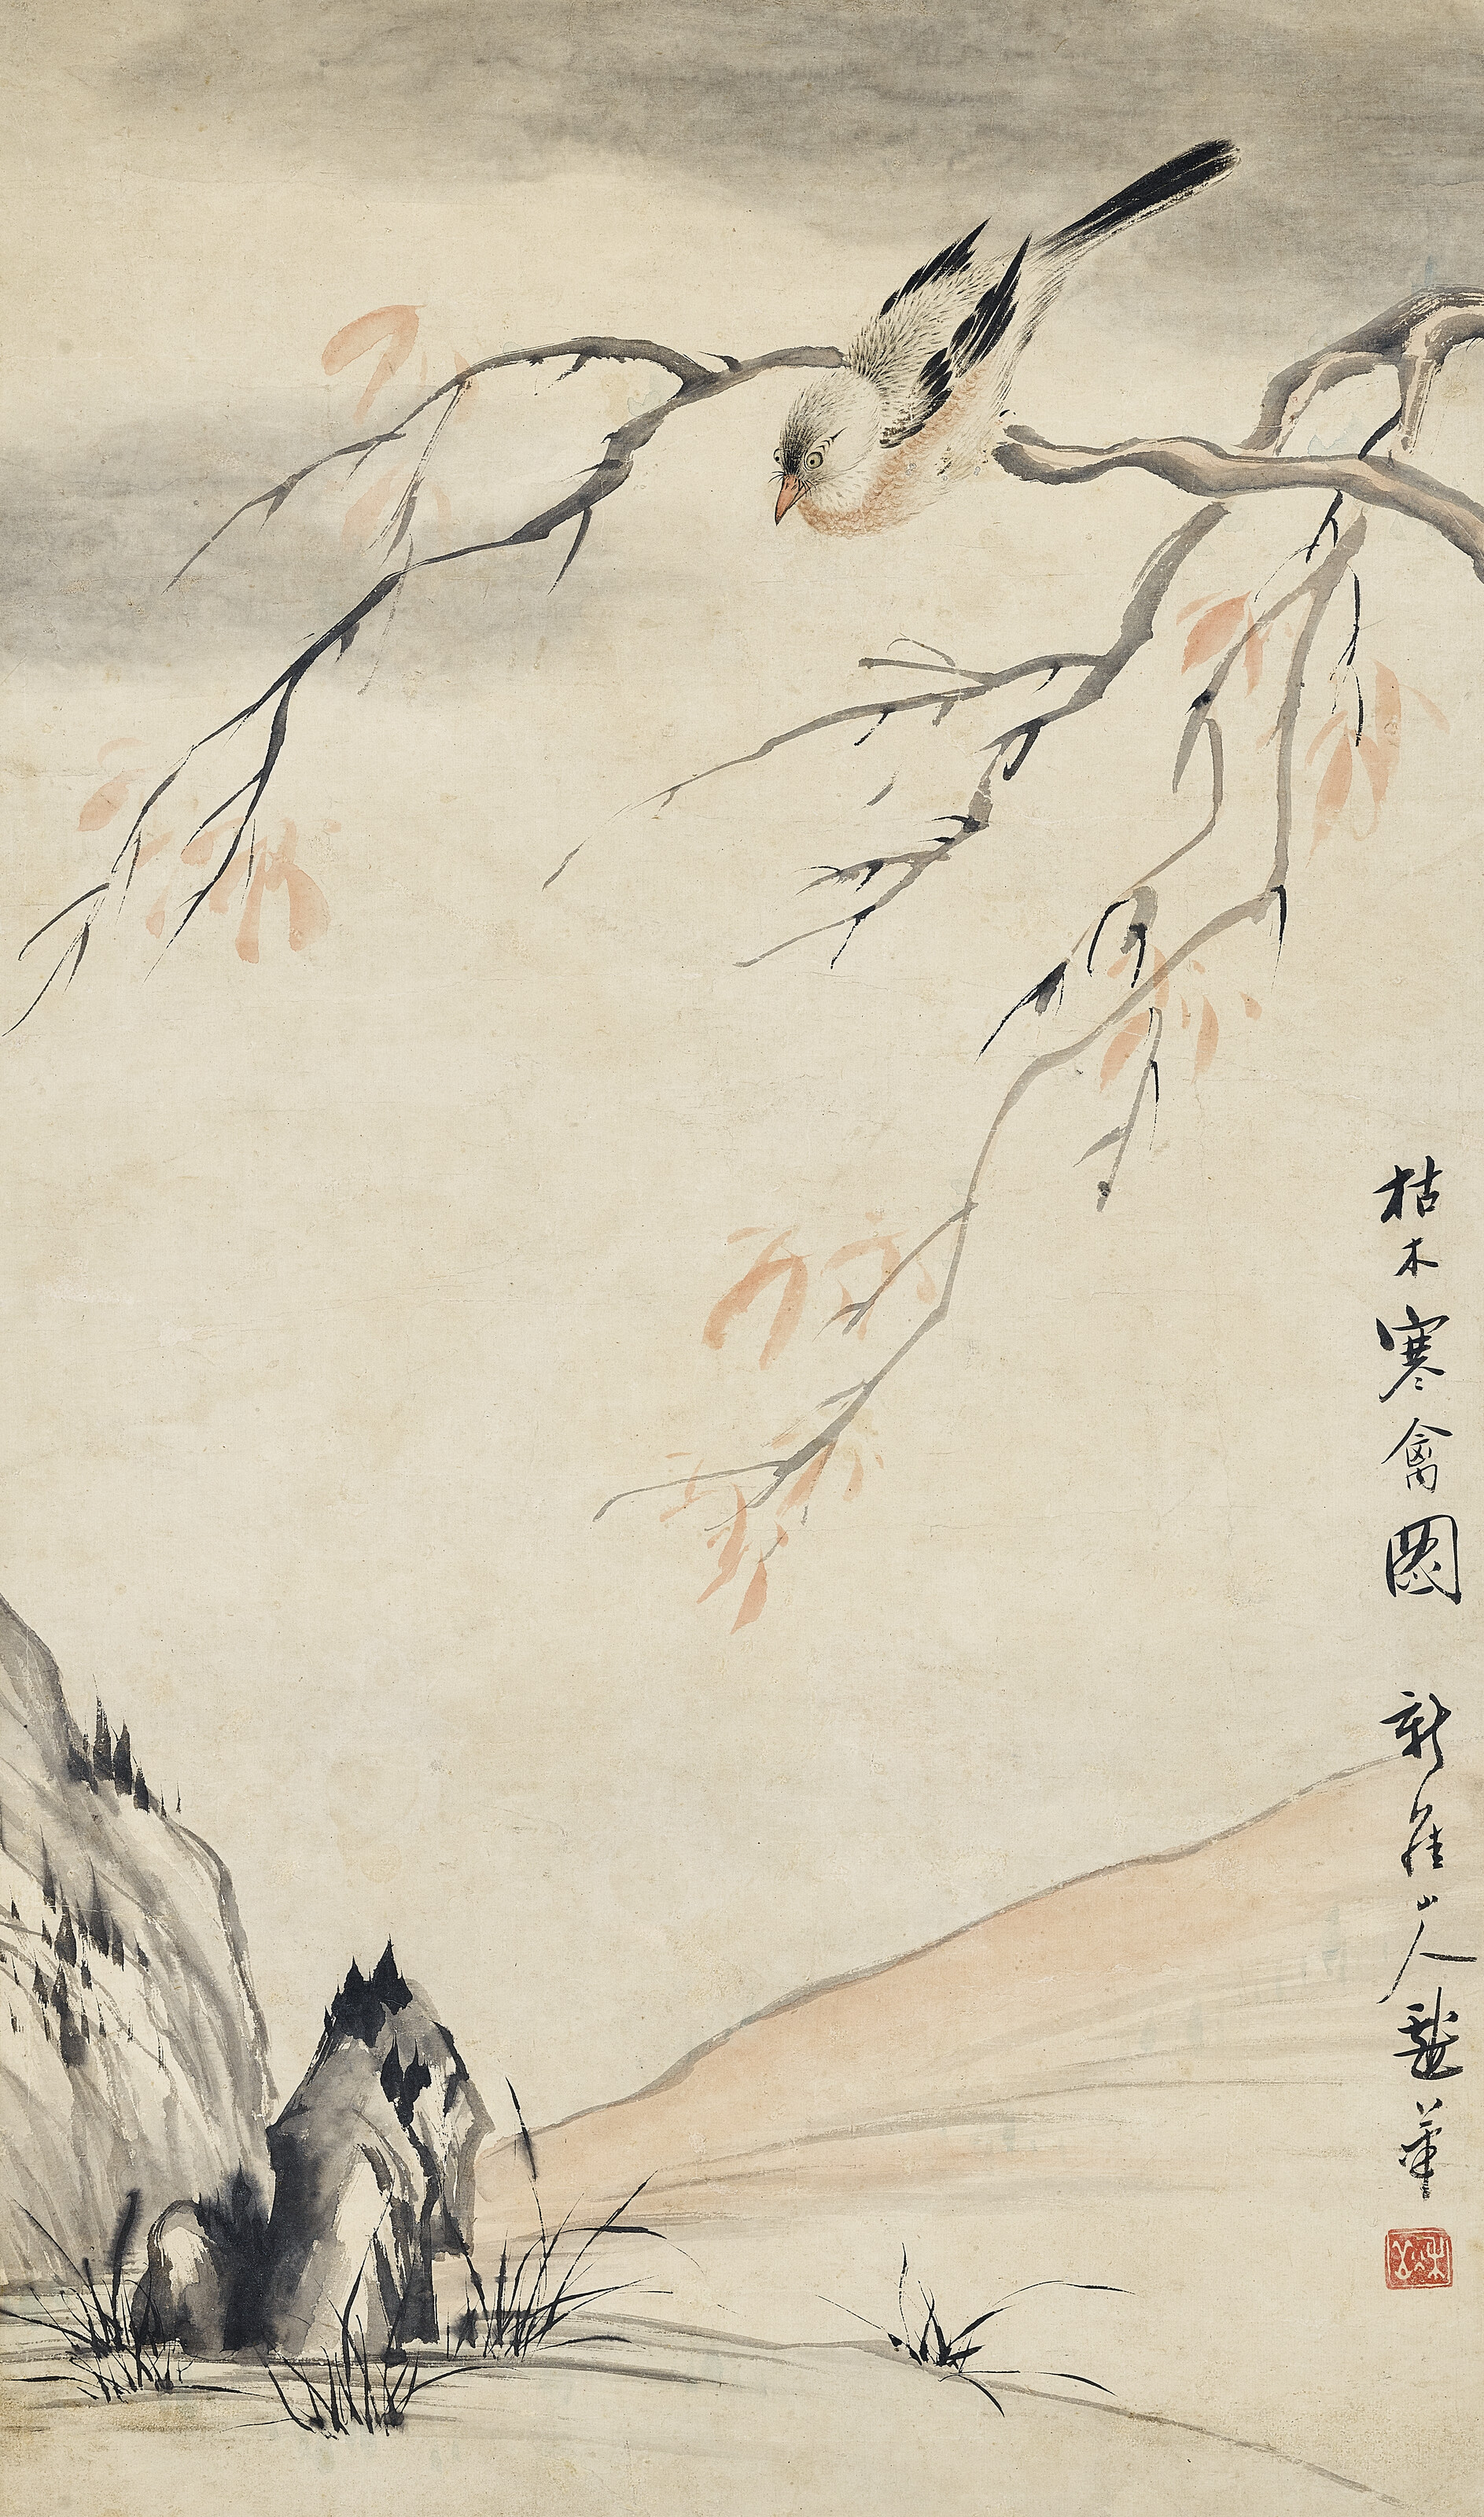 枯木寒禽圖 新羅山人嵒筆